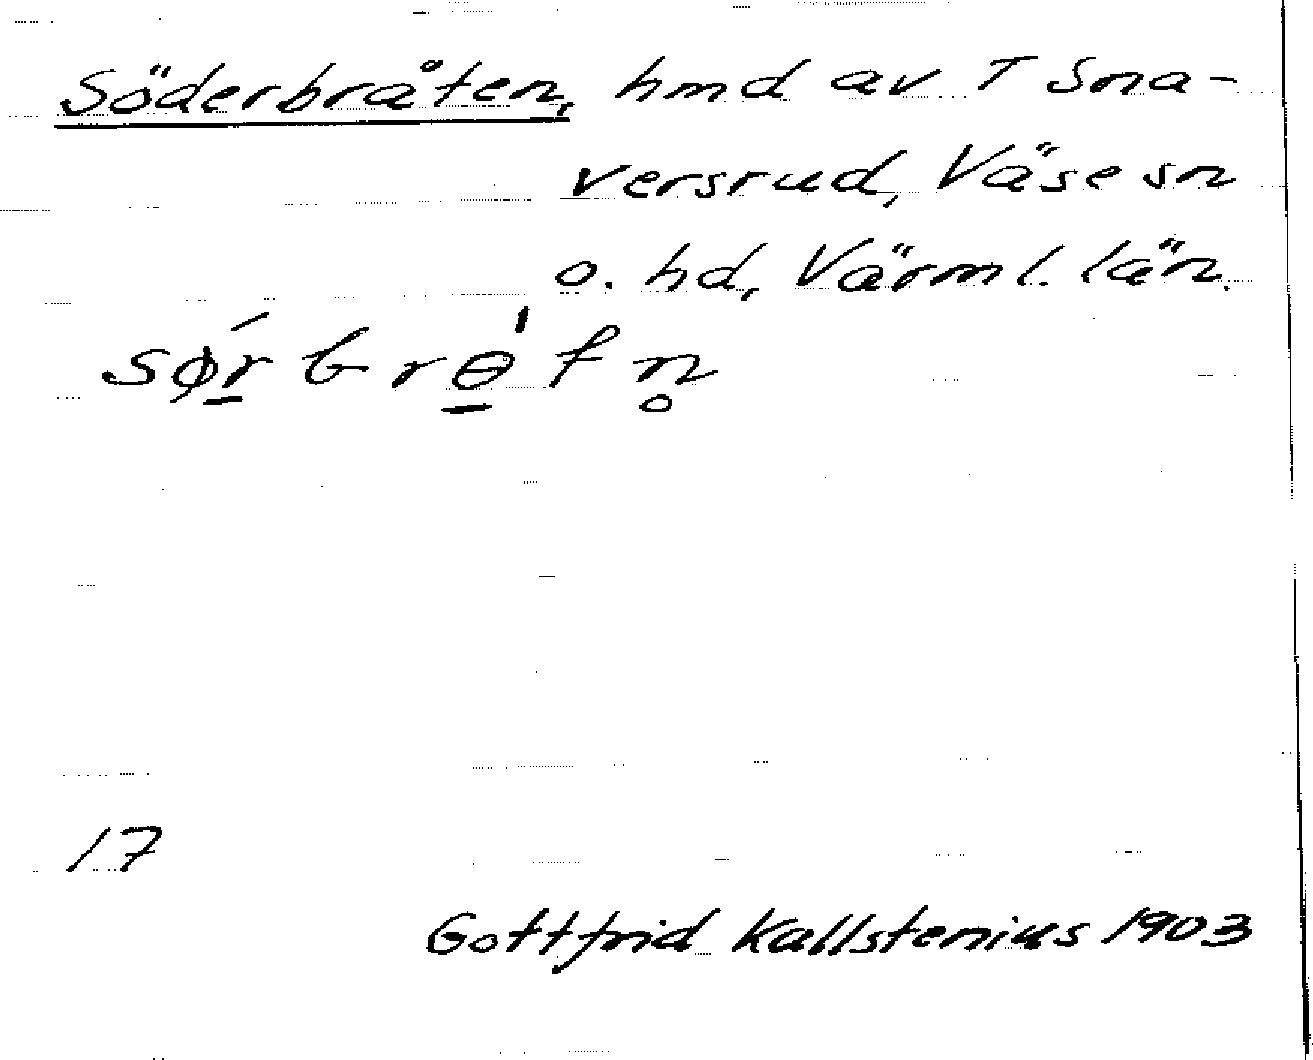 Söderbråten, hmd av T Sna-
versrud, Väse sn
o. hd, Värml. län.
sǿr̠brɵ̠́tn̥
17
Gottfrid Kallstenius 1903